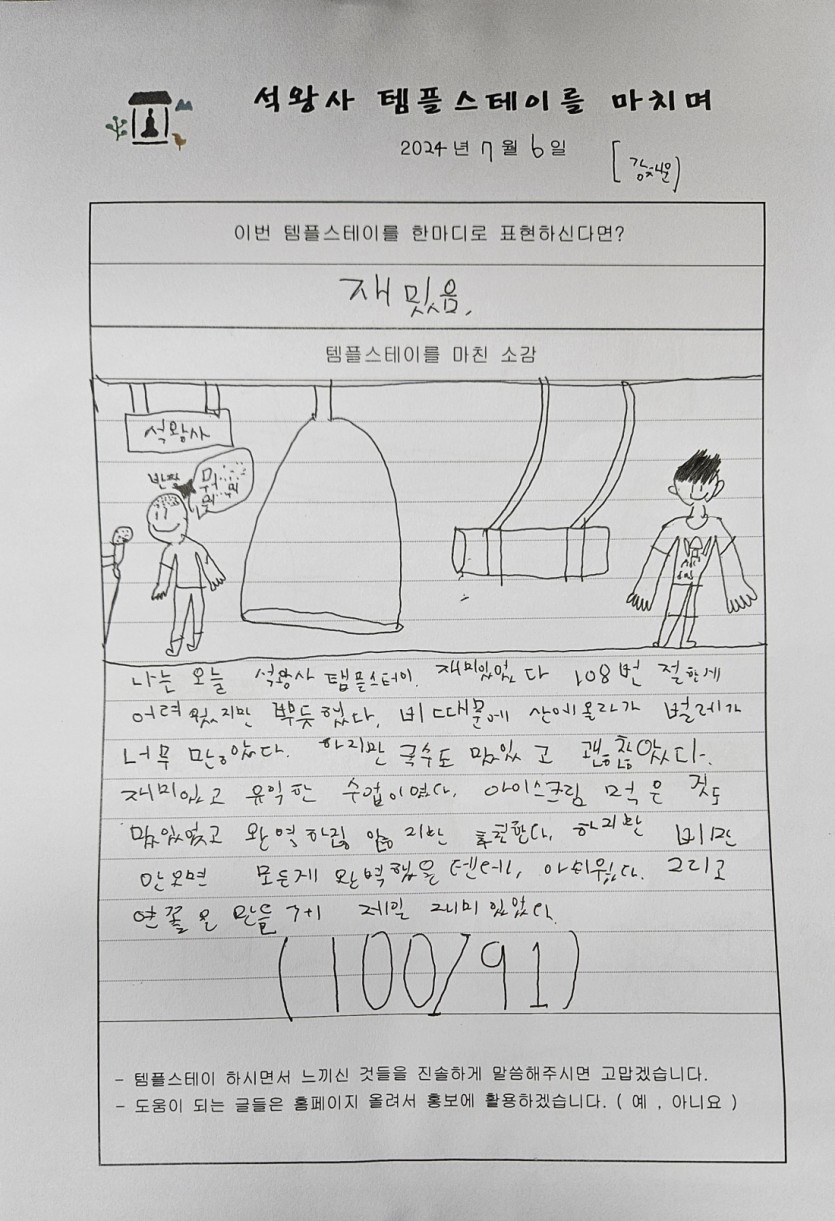 석왕사 템플스테이를 마치며
2024년 7월 6일
이번 템플스테이를 한마디로 표현하신다면?
재밌음.
템플스테이를 마친 소감
석왕사
반짝
나는 오늘 석왕사 탬플스테이. 재미있었다 108번 절한게
어려웠지만 뿌듯했다. 비때문에 산에올라가 벌레가
너무 많았다. 하지만 국수도 맛있고 괜찮았다.
재미있고 유익한 수업이였다. 아이스크림 먹은 것도
맛있었고 하지만 비만
안오면 모든게 완벽했을텐데, 아쉬웠다. 그리고
연꽃은 만들기 제일 재미있었다.
(100/91)
- 템플스테이 하시면서 느끼신 것들을 진솔하게 말씀해주시면 고맙겠습니다.
- 도움이 되는 글들은 홈페이지 올려서 홍보에 활용하겠습니다. ( 예 , 아니요 )